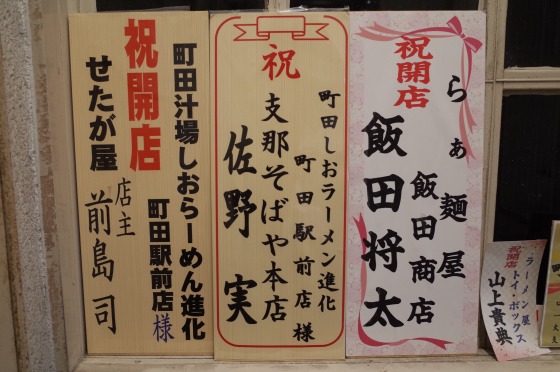 祝開店
らぁ麺屋
飯田商店
飯田将太
祝
町田しおラーメン進化
町田駅前店様
支那そばや本店
佐野実
町田汁場しおらーめん進化
町田駅前店様
祝開店
せたが屋
店主
前島司
祝開店
ラーメン屋
トイ・ボックス
山上貴典